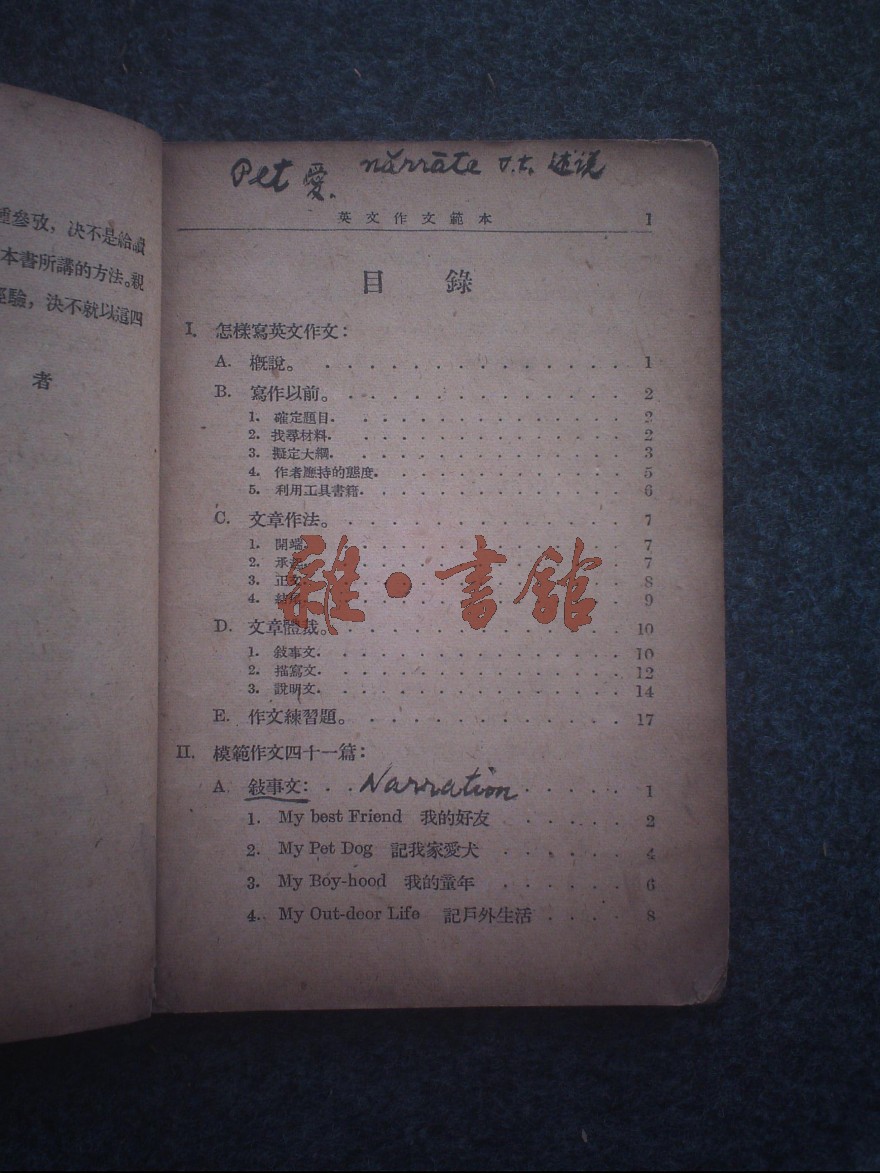 種參攷，决不是給讀
本書所講的方法。親
經驗，决不就以這四
者
Pet 愛. nărrāte v.t. 述说
英文作文範本 1
目錄
I. 怎樣寫英文作文：
A. 概說。 1
B. 寫作以前。 2
1. 確定題目. 2
2. 找尋材料. 2
3. 擬定大綱. 3
4. 作者應持的態度. 5
5. 利用工具書籍. 6
C. 文章作法。 7
1. 開端. 7
2. 承 7
3. 正文. 8
4. 結尾. 9
雜·書館
D. 文章體裁。 10
1. 敍事文. 10
2. 描寫文. 12
3. 說明文. 14
E. 作文練習題。 17
II. 模範作文四十一篇：
A 敍事文： Narration 1
1. My best Friend 我的好友 2
2. My Pet Dog 記我家愛犬 4
3. My Boy-hood 我的童年 6
4. My Out-deor Life 記戶外生活 8